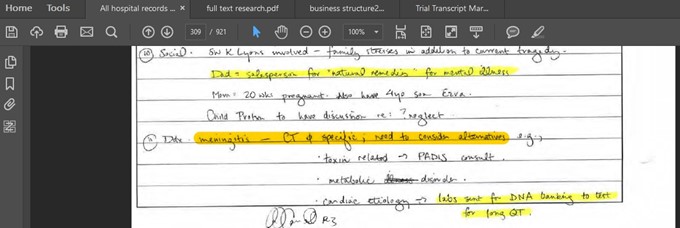 All hospital records ...
full text research.pdf
business structure2...
Trial Transcript Mar...
309 / 921
100%
10 Social. SW K Lyons involved – family stresses in addition to current tragedy.
Dad = salesperson for "natural remedies" for mental illness
Mom = 20 wks pregnant. Also have 4yo son Ezra.
Child Protxn to have discussion re: ? neglect
11 meningitis – CT ∅ specific; need to consider alternatives e.g.,
· toxin related → PADIS consult.
· metabolic disorder.
· cardiac etiology → labs sent for DNA banking to test
for long QT.
R3